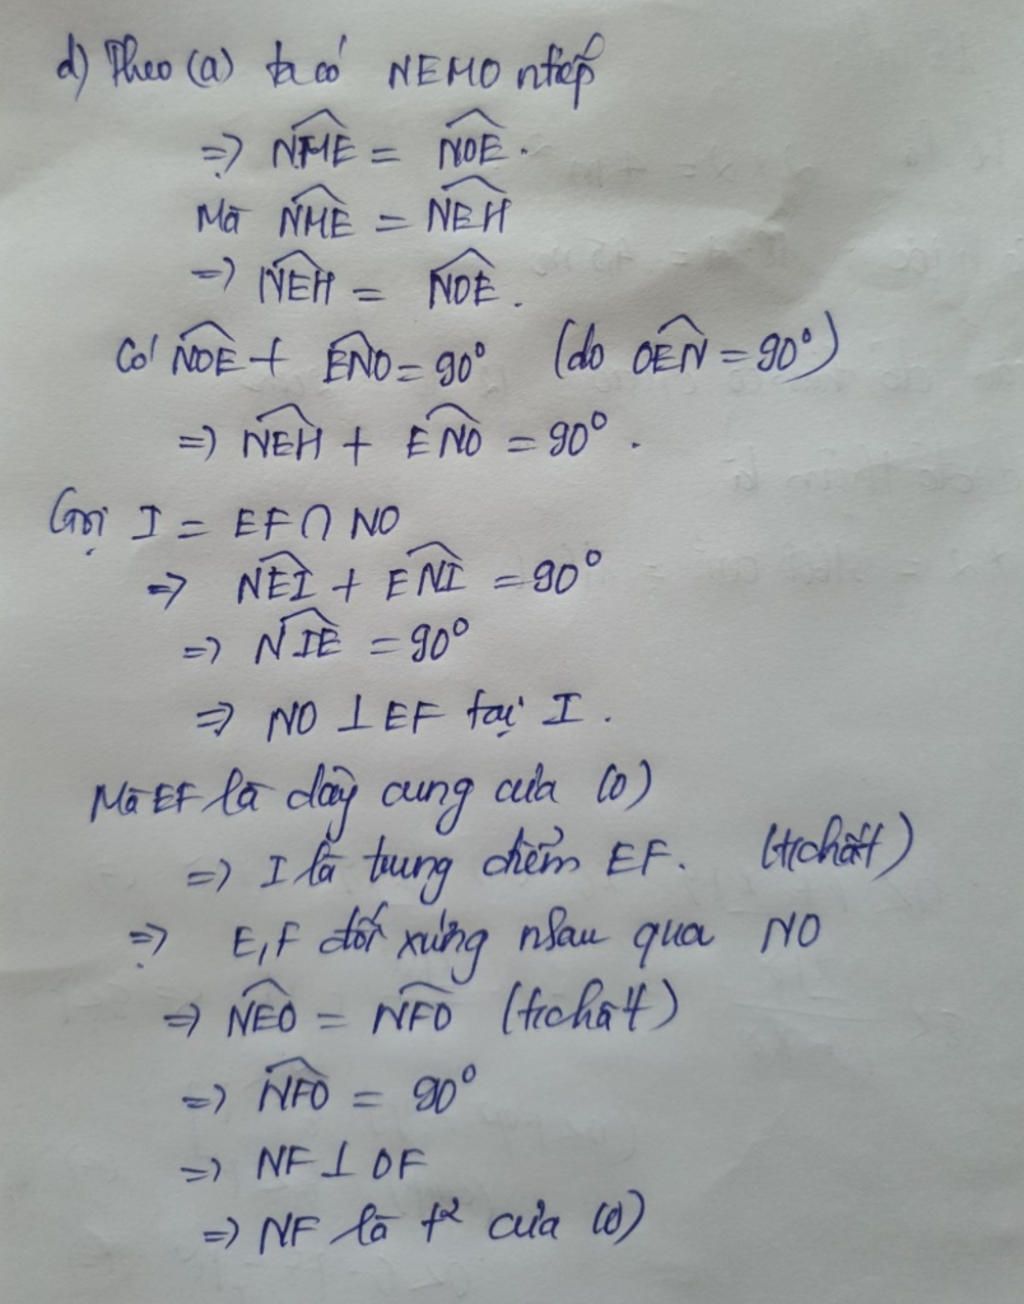 d) Theo (a) ta có NEMO ntiếp
=> \widehat{NME} = \widehat{NOE}.
Mà \widehat{NME} = \widehat{NEH}
=> \widehat{NEH} = \widehat{NOE}.
Có \widehat{NOE} + \widehat{ENO} = 90° (do \widehat{OEN} = 90°)
=> \widehat{NEH} + \widehat{ENO} = 90°.
Gọi I = EF ∩ NO
=> \widehat{NEI} + \widehat{ENI} = 90°
=> \widehat{NIE} = 90°
=> NO ⊥ EF tại I.
Mà EF là dây cung của (O)
=> I là trung điểm EF. (t/chất)
=> E, F đối xứng nhau qua NO
=> \widehat{NEO} = \widehat{NFO} (t/chất)
=> \widehat{NFO} = 90°
=> NF ⊥ OF
=> NF là t² của (O)